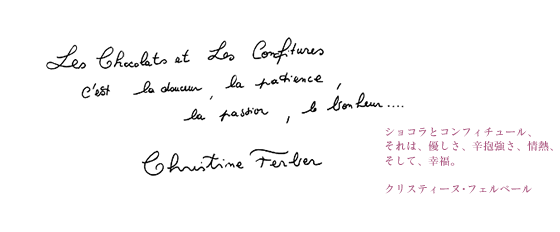 Les Chocolats et Les Confitures
c'est la douceur, la patience,
la passion, le bonheur....
Christine Ferber
ショコラとコンフィチュール、
それは、優しさ、辛抱強さ、情熱、
そして、幸福。
クリスティーヌ・フェルベール